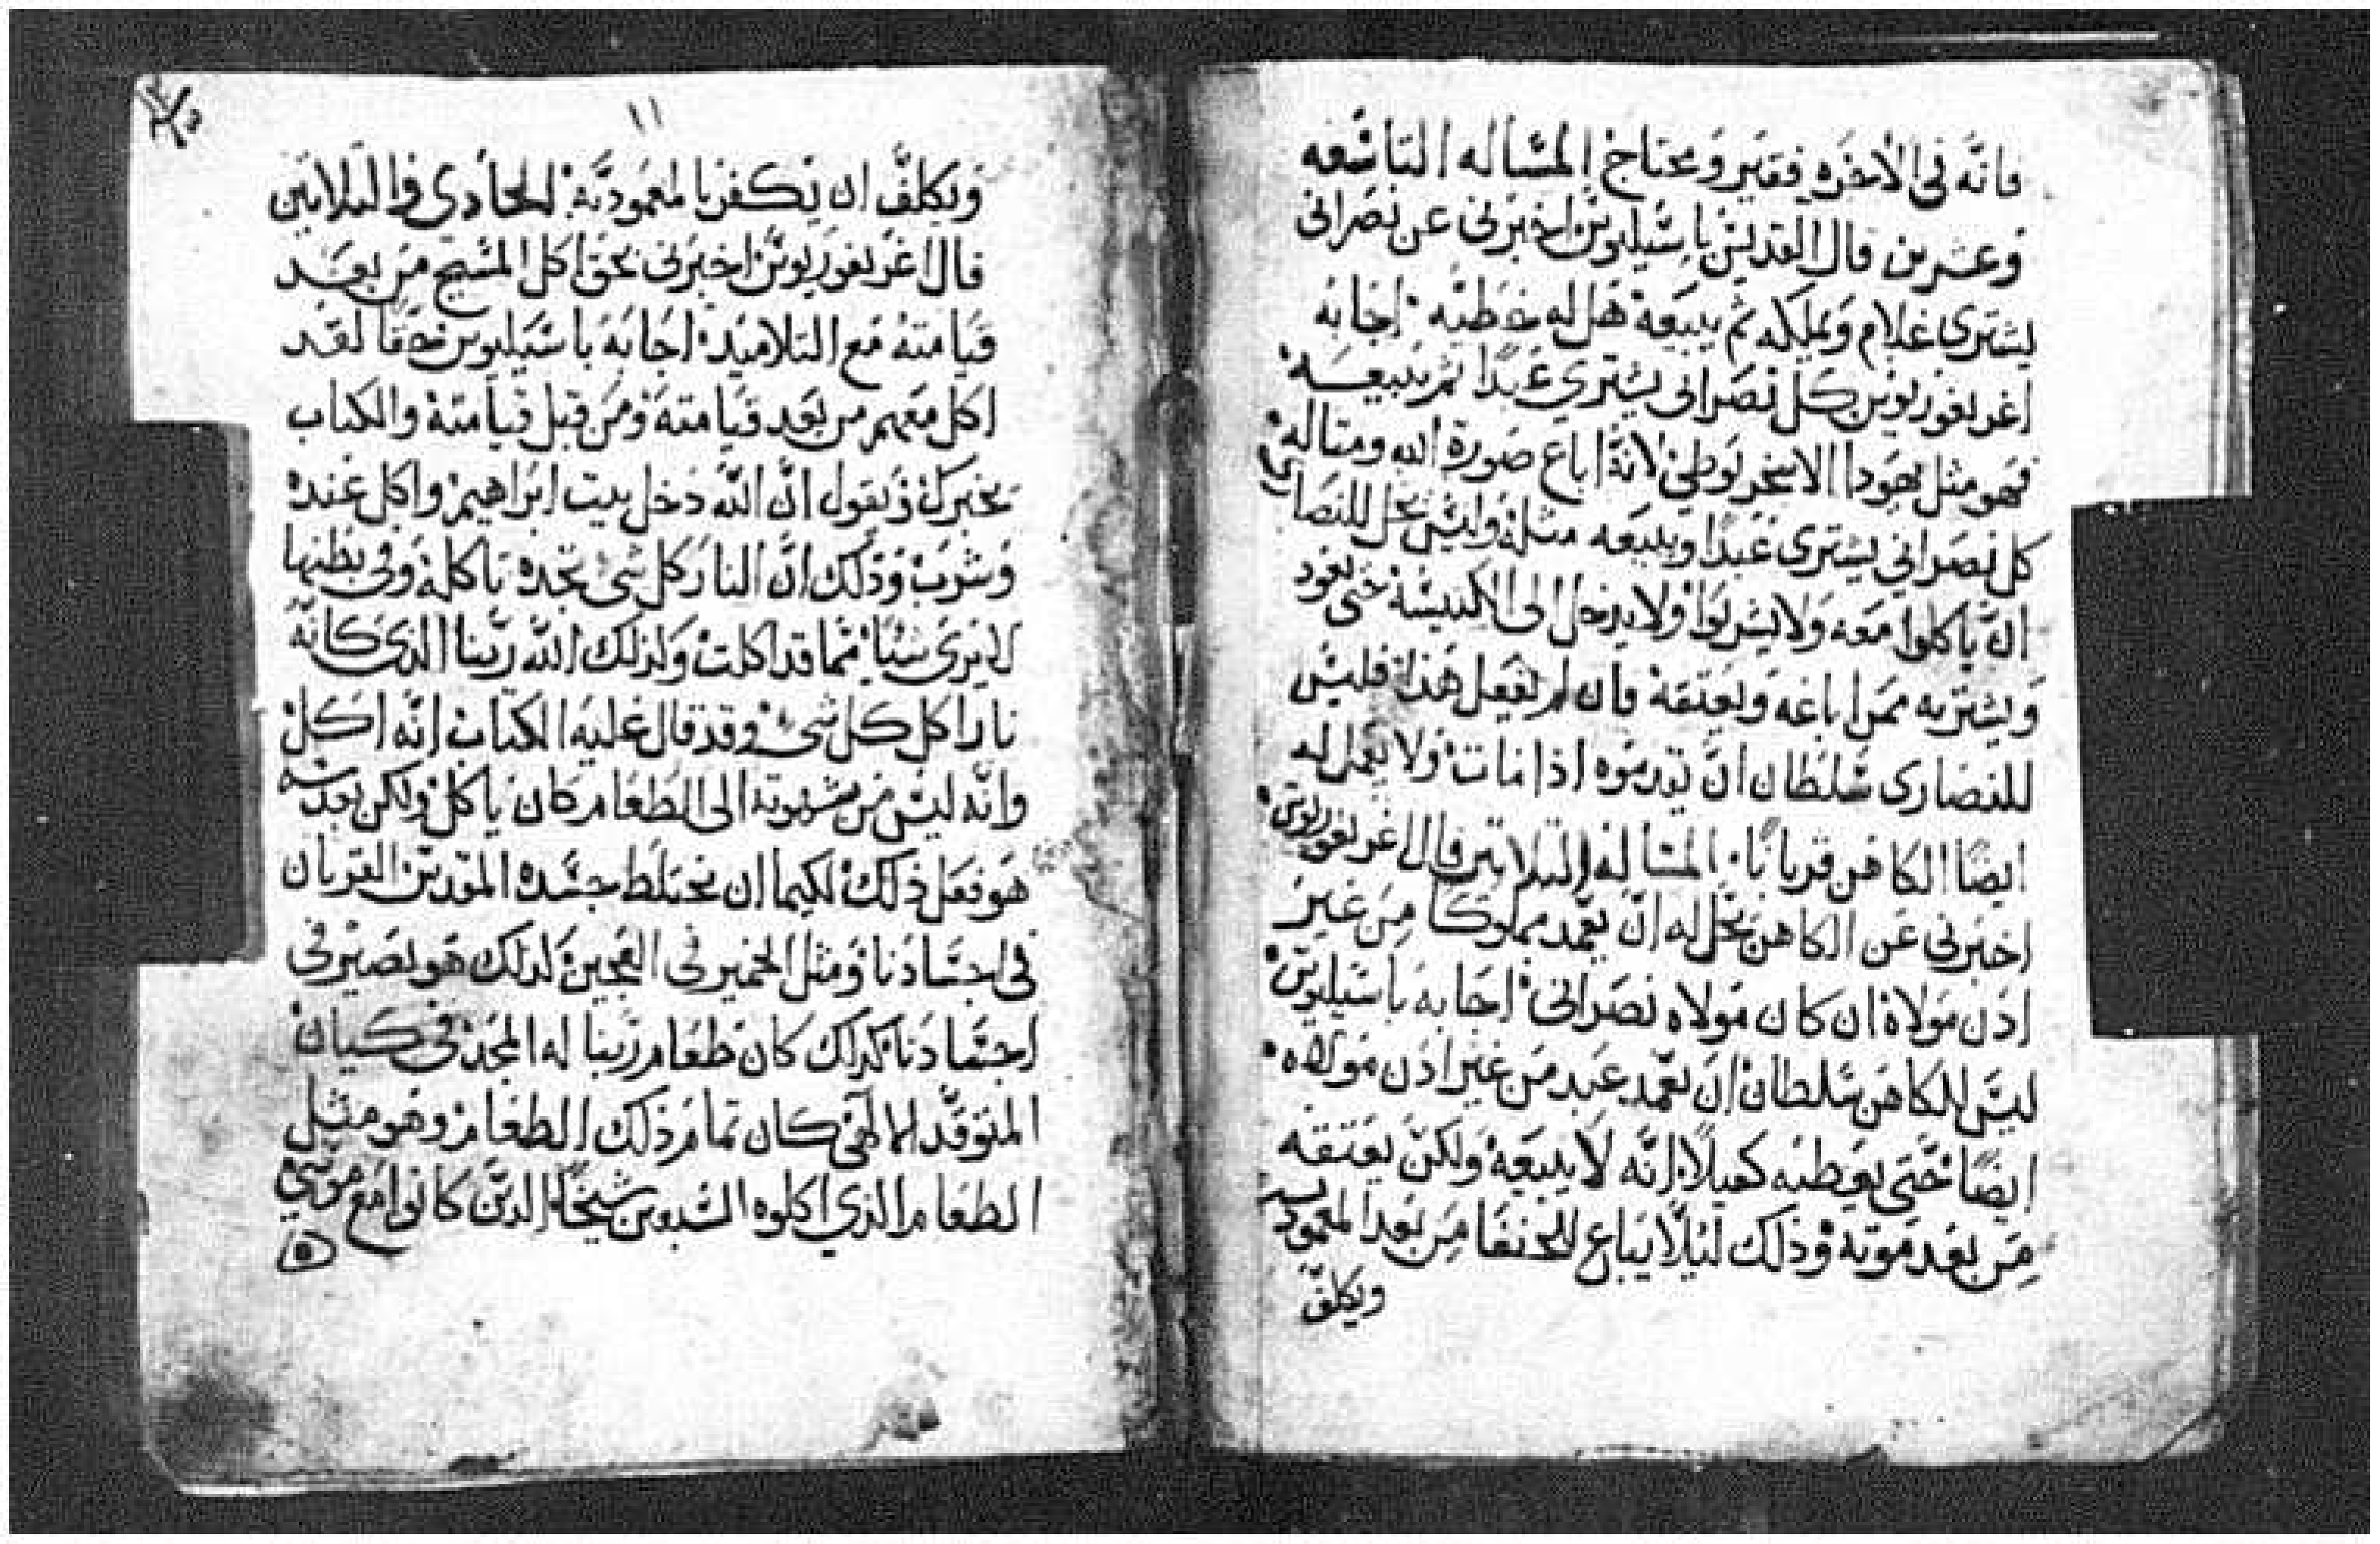 فانه فى الاخره فقير ومحتاج المساله التاسعه
وعشرين قال القديس باسيليوس اخبرنى عن نصرانى
يشترى غلام ويملكه ثم يبيعه هل له خطيه اجابه
اغريغوريوس كل نصرانى يشتري عبدًا ثم يبيعه
فهو مثل يهودا الاسخريوطي لانه اباع صورة الله ومثاله
كل نصراني يشترى عبدًا ويبيعه مثله وليس يحل للنصارى
ان ياكلوا معه ولا يشربوا ولا يدخل الى الكنيسه حتى يعود
ويشتريه ممن اباعه ويعتقه فان لم يفعل هذا فليس
للنصارى سلطان ان اذا مات ولا يعمل له
ايضًا الكاهن قربانًا المساله الثلاثين قال اغريغوريوس
اخبرنى عن الكاهن يحل له ان يعمد مملوكًا من غير
اذن مولاه ان كان مولاه نصرانى اجابه باسيليوس
ليس للكاهن سلطان ان يعمد عبد من غير اذن مولاه
ايضًا حتى يعطيه كفيلًا انه لا يبيعه ولكن يعتقه
من بعد موته وذلك ليلا يباع للحنفا من بعد المعموديه
ويكلف
١١
ويكلف ان يكفر بالمعموديه الحادى والثلاثين
قال اغريغوريوس اخبرنى بحق اكل المسيح من بعد
قيامته مع التلاميذ اجابه باسيليوس حقًا لقد
اكل معهم من بعد قيامته ومن قبل قيامته والكتاب
يخبرك ويقول ان الله دخل بيت ابراهيم واكل عنده
وشرب وذلك ان النار كل شى تجده تاكله وفى بطنها
لا يرى شيًا مما قد اكلت ولذلك الله ربنا الذى كانه
نار اكل كل شى وقد قال عليه الكتاب انه اكل
وانه ليس من شهوته الى الطعام كان ياكل ولكن
هو فعل ذلك لكيما ان يختلط جسده القربان
فى اجسادنا ومثل الخمير فى العجين لذلك هو يصير فى
اجسادنا كذلك كان طعام ربنا له المجد فى كيان
المتوقد الالاهى كان تمام ذلك الطعام وهو مثل
الطعام الذي اكلوه السبعين شيخًا الذين كانوا مع موسي